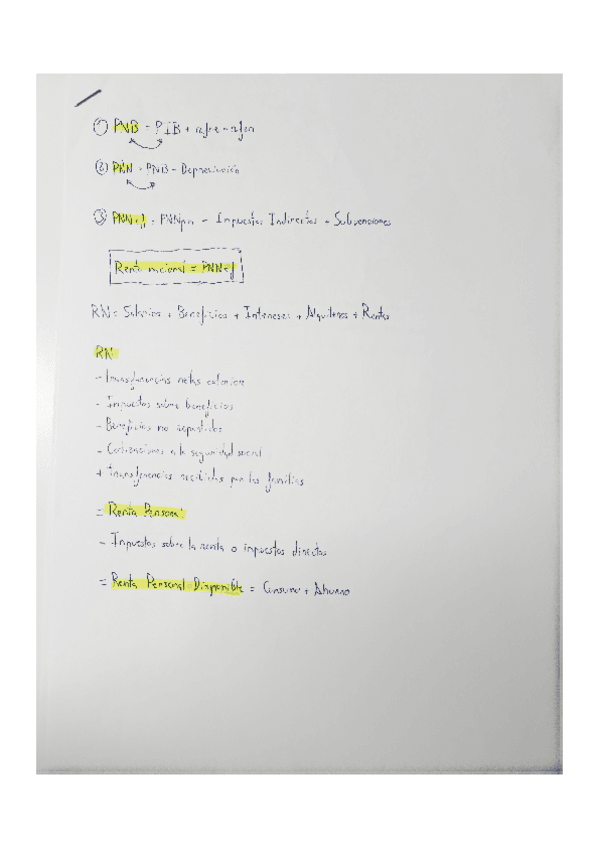 ① PNB = PIB + rafre - rafen
② PNN = PNB - Depreciación
③ PNNcf = PNNpm - Impuestos Indirectos + Subvenciones
Renta nacional = PNNcf
RN = Salarios + Beneficios + Intereses + Alquileres + Rentas
RN
- transferencias netas exterior
- Impuestos sobre beneficios
- Beneficios no repartidos
- Cotizaciones a la seguridad social
+ transferencias recibidas por las familias
= Renta Personal
- Impuestos sobre la renta o impuestos directos
= Renta Personal Disponible = Consumo + Ahorro